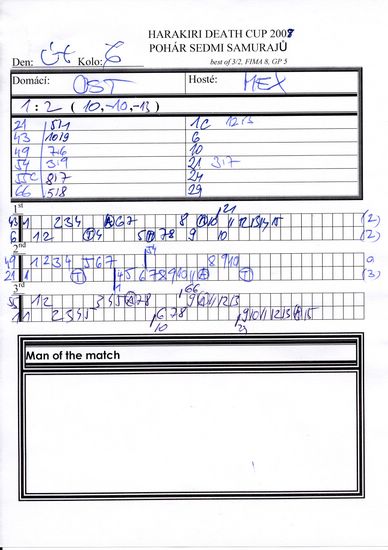 HARAKIRI DEATH CUP 2008
POHÁR SEDMI SAMURAJŮ
Den: Út Kolo: 6 best of 3/2, FIMA 8, GP 5
Domácí: OST Hosté: MEX
1 : 2 ( 10, -10, -13 )
21 5/1 1C 12/3
43 10/9 6
49 7/6 10
54 3/9 21 3/7
55C 8/7 24
66 5/8 29
1st
43 1 2 3 4 A 6 7 8 A 10 11 12 13 14 15 (2)
6 1 2 T 4 5 7 8 9 10 (2)
2nd
49 1 2 3 4 5 6 7 8 9 10
21 1 T 4 5 6 7 8 9 10 11 A T (3)
3rd
55 1 2 3 4 5 A 7 8 9 A 11 12 13
1 2 3 4 5 6 7 8 9 10 11 12 13 A 15
Man of the match